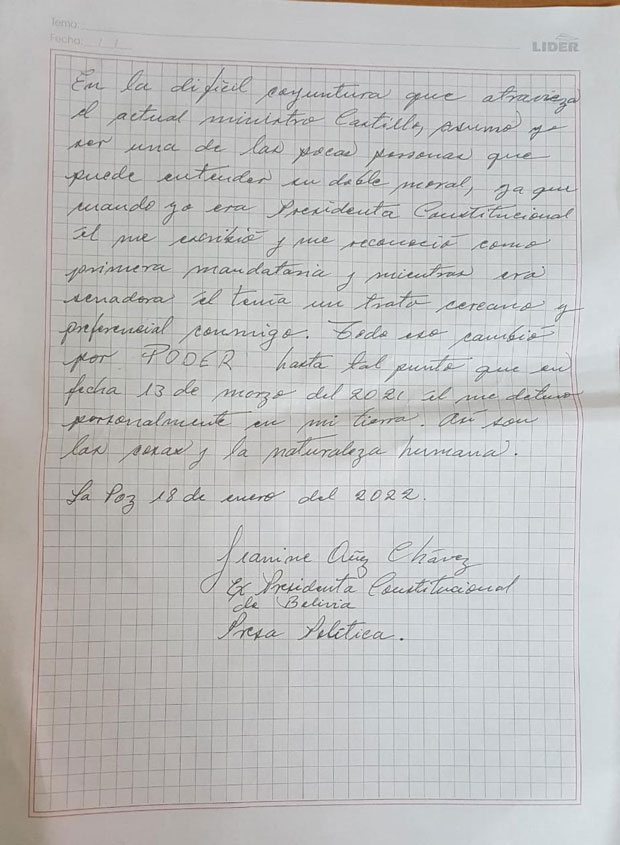 Tema:
Fecha: / /
LIDER
En la dificil coyuntura que atravieza
el actual ministro Castillo, asumo yo
ser una de las pocas personas que
puede entender su doble moral, ya que
cuando yo era Presidenta Constitucional
él me escribió y me reconoció como
primera mandataria y mientras era
senadora él tenía un trato cercano y
preferencial conmigo. Todo eso cambió
por PODER hasta tal punto que en
fecha 13 de marzo del 2021 él me detuvo
personalmente en mi tierra. Así son
las cosas y la naturaleza humana.
La Paz 18 de enero del 2022.
Jeanine Añez Chávez
Ex Presidenta Constitucional
de Bolivia
Presa Política.